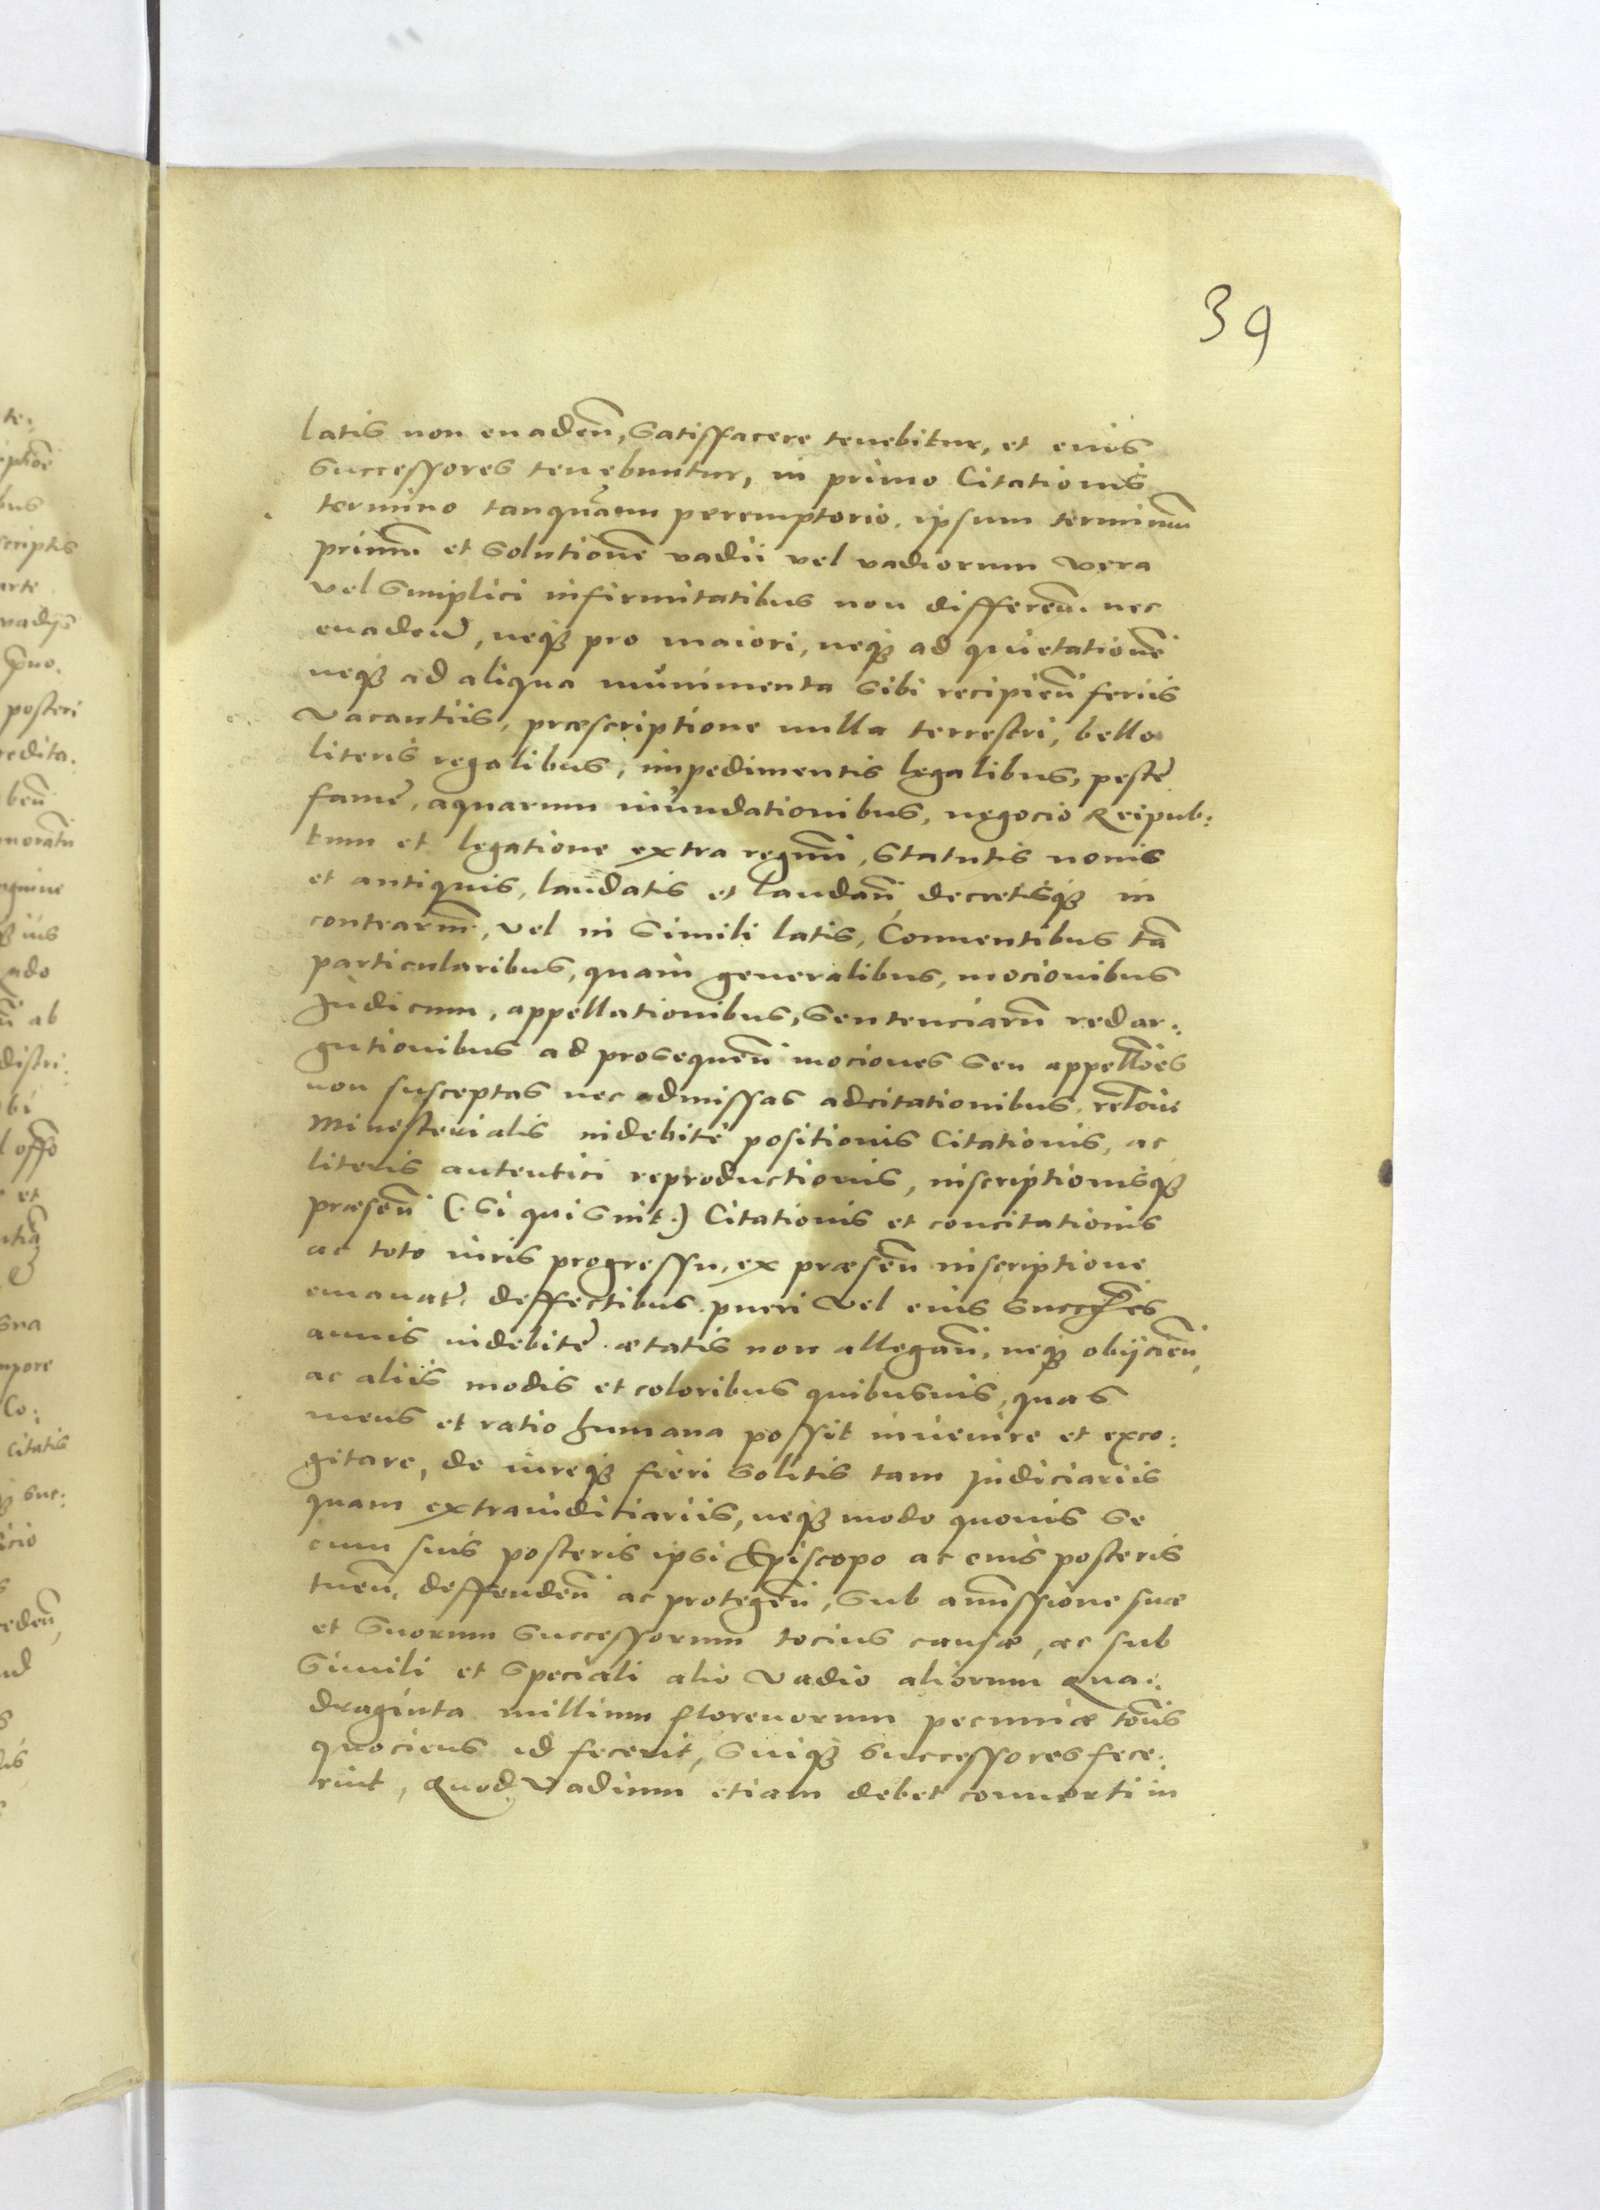 39
latis non euadeñ, Satisfacere tenebitur, et eius
Successores tenebuntur, in primo Citationis
termino tanquam peremptorio. ipsum terminum
primũ et Solutionẽ vadii vel vadiorum vera
vel Simplici infirmitatibus non differeñ. nec
euadeñ, neqȝ pro maiori, neqȝ ad quietationẽ
neqȝ ad aliqua munimenta Sibi recipieñ feriis
vacantiis, præscriptione nulla terrestri, bello
literis regalibus, impedimentis legalibus, peste
fame, aquarum inundationibus, negocio Reipub:
tum et legatione extra regnũ, Statutis nouis
et antiquis, laudatis et laudañ, decretisqȝ in
contrariũ, vel in Simili latis, Conuentibus tã
particularibus, quam generalibus, mocionibus
Judicum, appellationibus, Sentenciarũ redar:
gutionibus ad prosequeñ mociones seu appell̃oẽs
non susceptas nec admissas adcitationibus. rel̃one
Ministerialis indebite positionis Citationis, ac
literis autentici reproductionis, inscriptionisqȝ
præseñ (: Si qui Snit :) Citationis et concitationis
ac toto iuris progressu, ex præseñ inscriptione
emanat̃. deffectibus. pueri vel eius Succ̃res
annis indebite ætatis non allegañ, neqȝ obijcieñ,
ac aliis modis et coloribus quibusuis, quas
mens et ratio humana possit inuenire et exco:
gitare, de iureqȝ fieri Solitis tam judiciariis
quam extraiudiciariis, neqȝ modo quouis Se
cum suis posteris ipsi Episcopo ac eius posteris
tueñ. deffendeñ ac protegeñ, Sub amissione suæ
et Suorum Successorum tocius causæ, ac sub
Simili et Speciali alio Vadio aliorum Qua:
draginta millium florenorum pecuniæ tociens
quociens id fecerit, Suiqȝ Successores fece:
rint, Quod Vadium etiam debet conuerti in